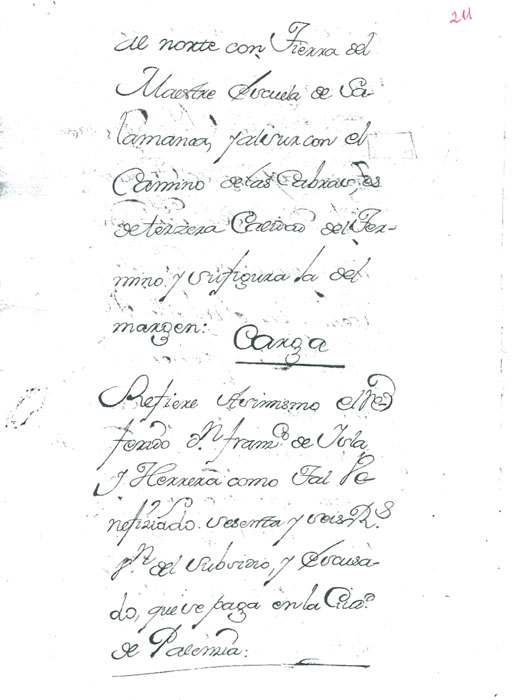 211
al norte con Tierra del
Maestre Escuela de Sa-
lamanca, y al sur con el
Camino de las Cabras, es
de terzera Calidad del Ter-
mino: y su figura la del
margen:
Carga
Refiere Asimismo el Re
ferido Dn. franco. de Isla
y Herrera como Tal Be
nefiziado sesenta y seis Rs.
pr. del subsidio, y Escusa-
do, que se paga en la Ciud.
de Palencia: